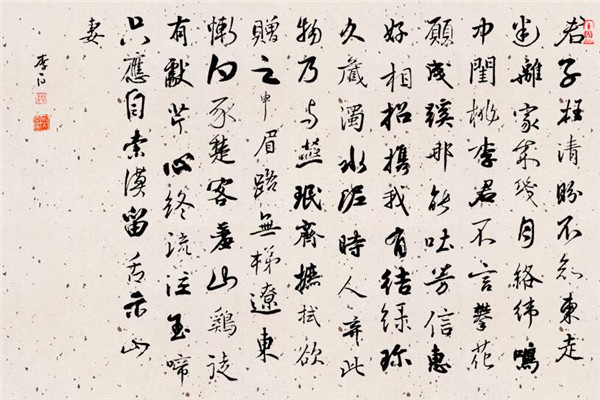 君子枉清盼不知東走
迷離家未幾月絡緯鳴
中閨桃李君不言攀花
願成蹊那能吐芳信惠
好相招携我有結綠珍
久藏濁水泥時人弃此
物乃与燕珉齊摭拭欲
贈之申眉路無梯遼東
慚白豕楚客羞山鷄徒
有獻芹心終流泣玉啼
只應自索漠留舌示山
妻
李白